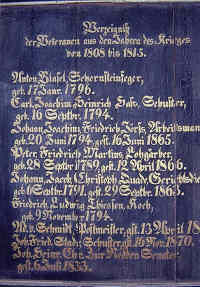 Verzeignis
der Veteranen aus den Jahren des Krieges
von 1808 bis 1815.
Anton Blasel, Schornsteinfeger,
geb. 17 Janr. 1796.
Carl Joachim Heinrich Schuster,
geb. 16 Septbr. 1794.
Johann Joachim Friedrich Arbeitsmann
geb. 20 Juni 1794. gest. 16 Juni 1865.
Peter Friedrich Martins Lohgärber,
geb. 28 Septbr 1789. gest. 12. April 1866.
Johann Jacob Christoph Quade,
geb. 1 Septb. 1791. gest. 29 Septbr. 1863.
Friedrich Ludwig Thiessen, Koch,
geb. 9 November 1794.
v. Schmidt, Postmeister, gest. 13 April
Joh. Fried. Schuster, gest. 16 Nov. 1870.
Joh. Heinr. Chr. zur Nedden Senator
gest. 6 Juli 1833.